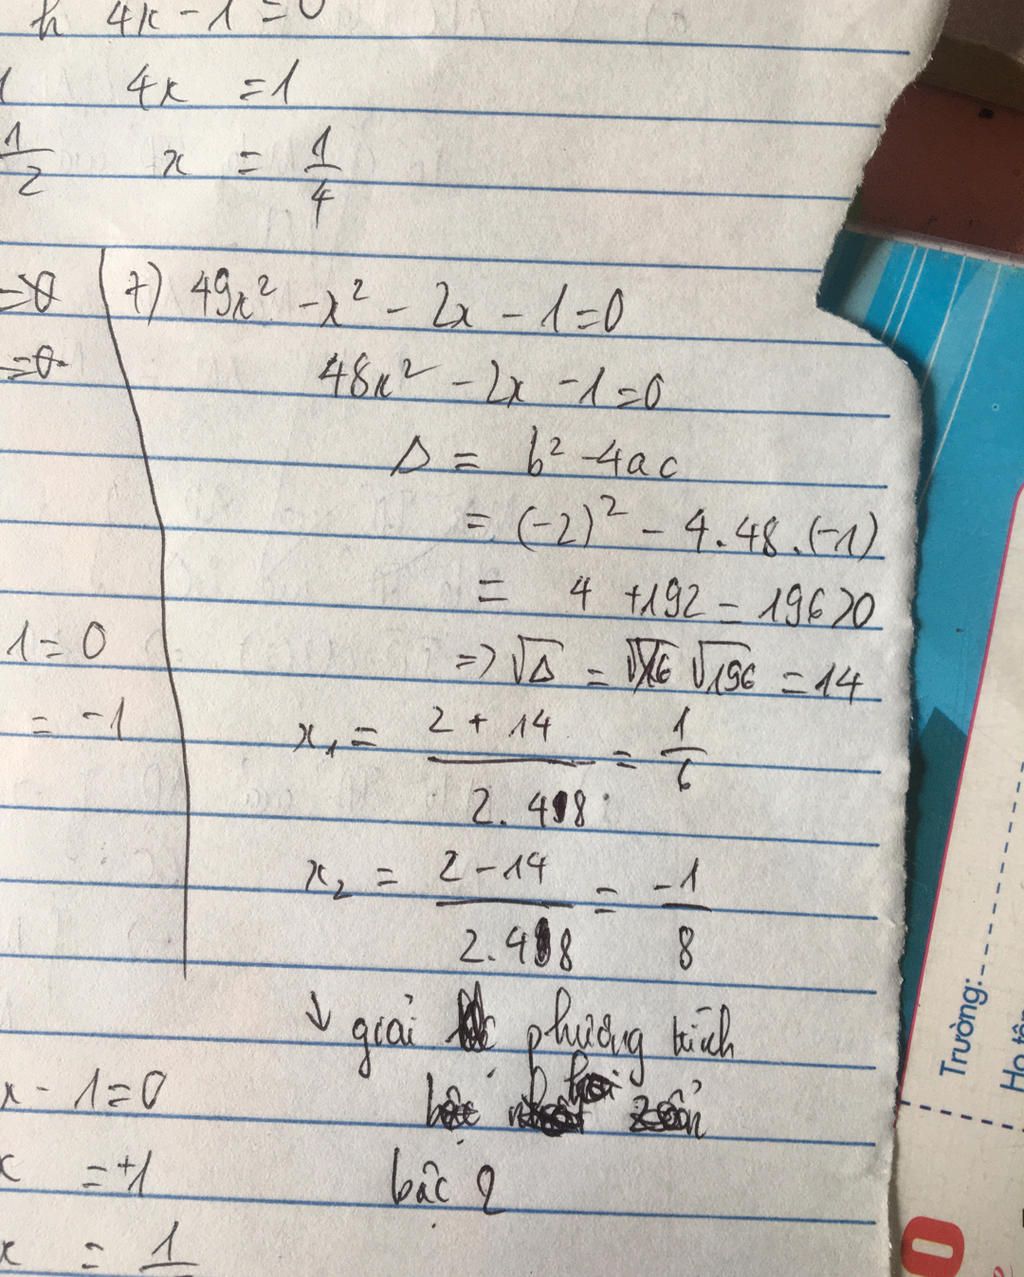 4x - 1 = 0
1 4x = 1
1/2 x = 1/4
=> 0
= 0
7) 49x² - x² - 2x - 1 = 0
48x² - 2x - 1 = 0
Δ = b² - 4ac
= (-2)² - 4.48.(-1)
= 4 + 192 = 196 > 0
=> √Δ = √196 = 14
x₁ = (2 + 14)/(2.48) = 1/6
x₂ = (2 - 14)/(2.48) = -1/8
1 = 0
= -1
↓ giải phương trình
bậc 2
x - 1 = 0
x = +1
x = 1
Trường:
Họ tên
0